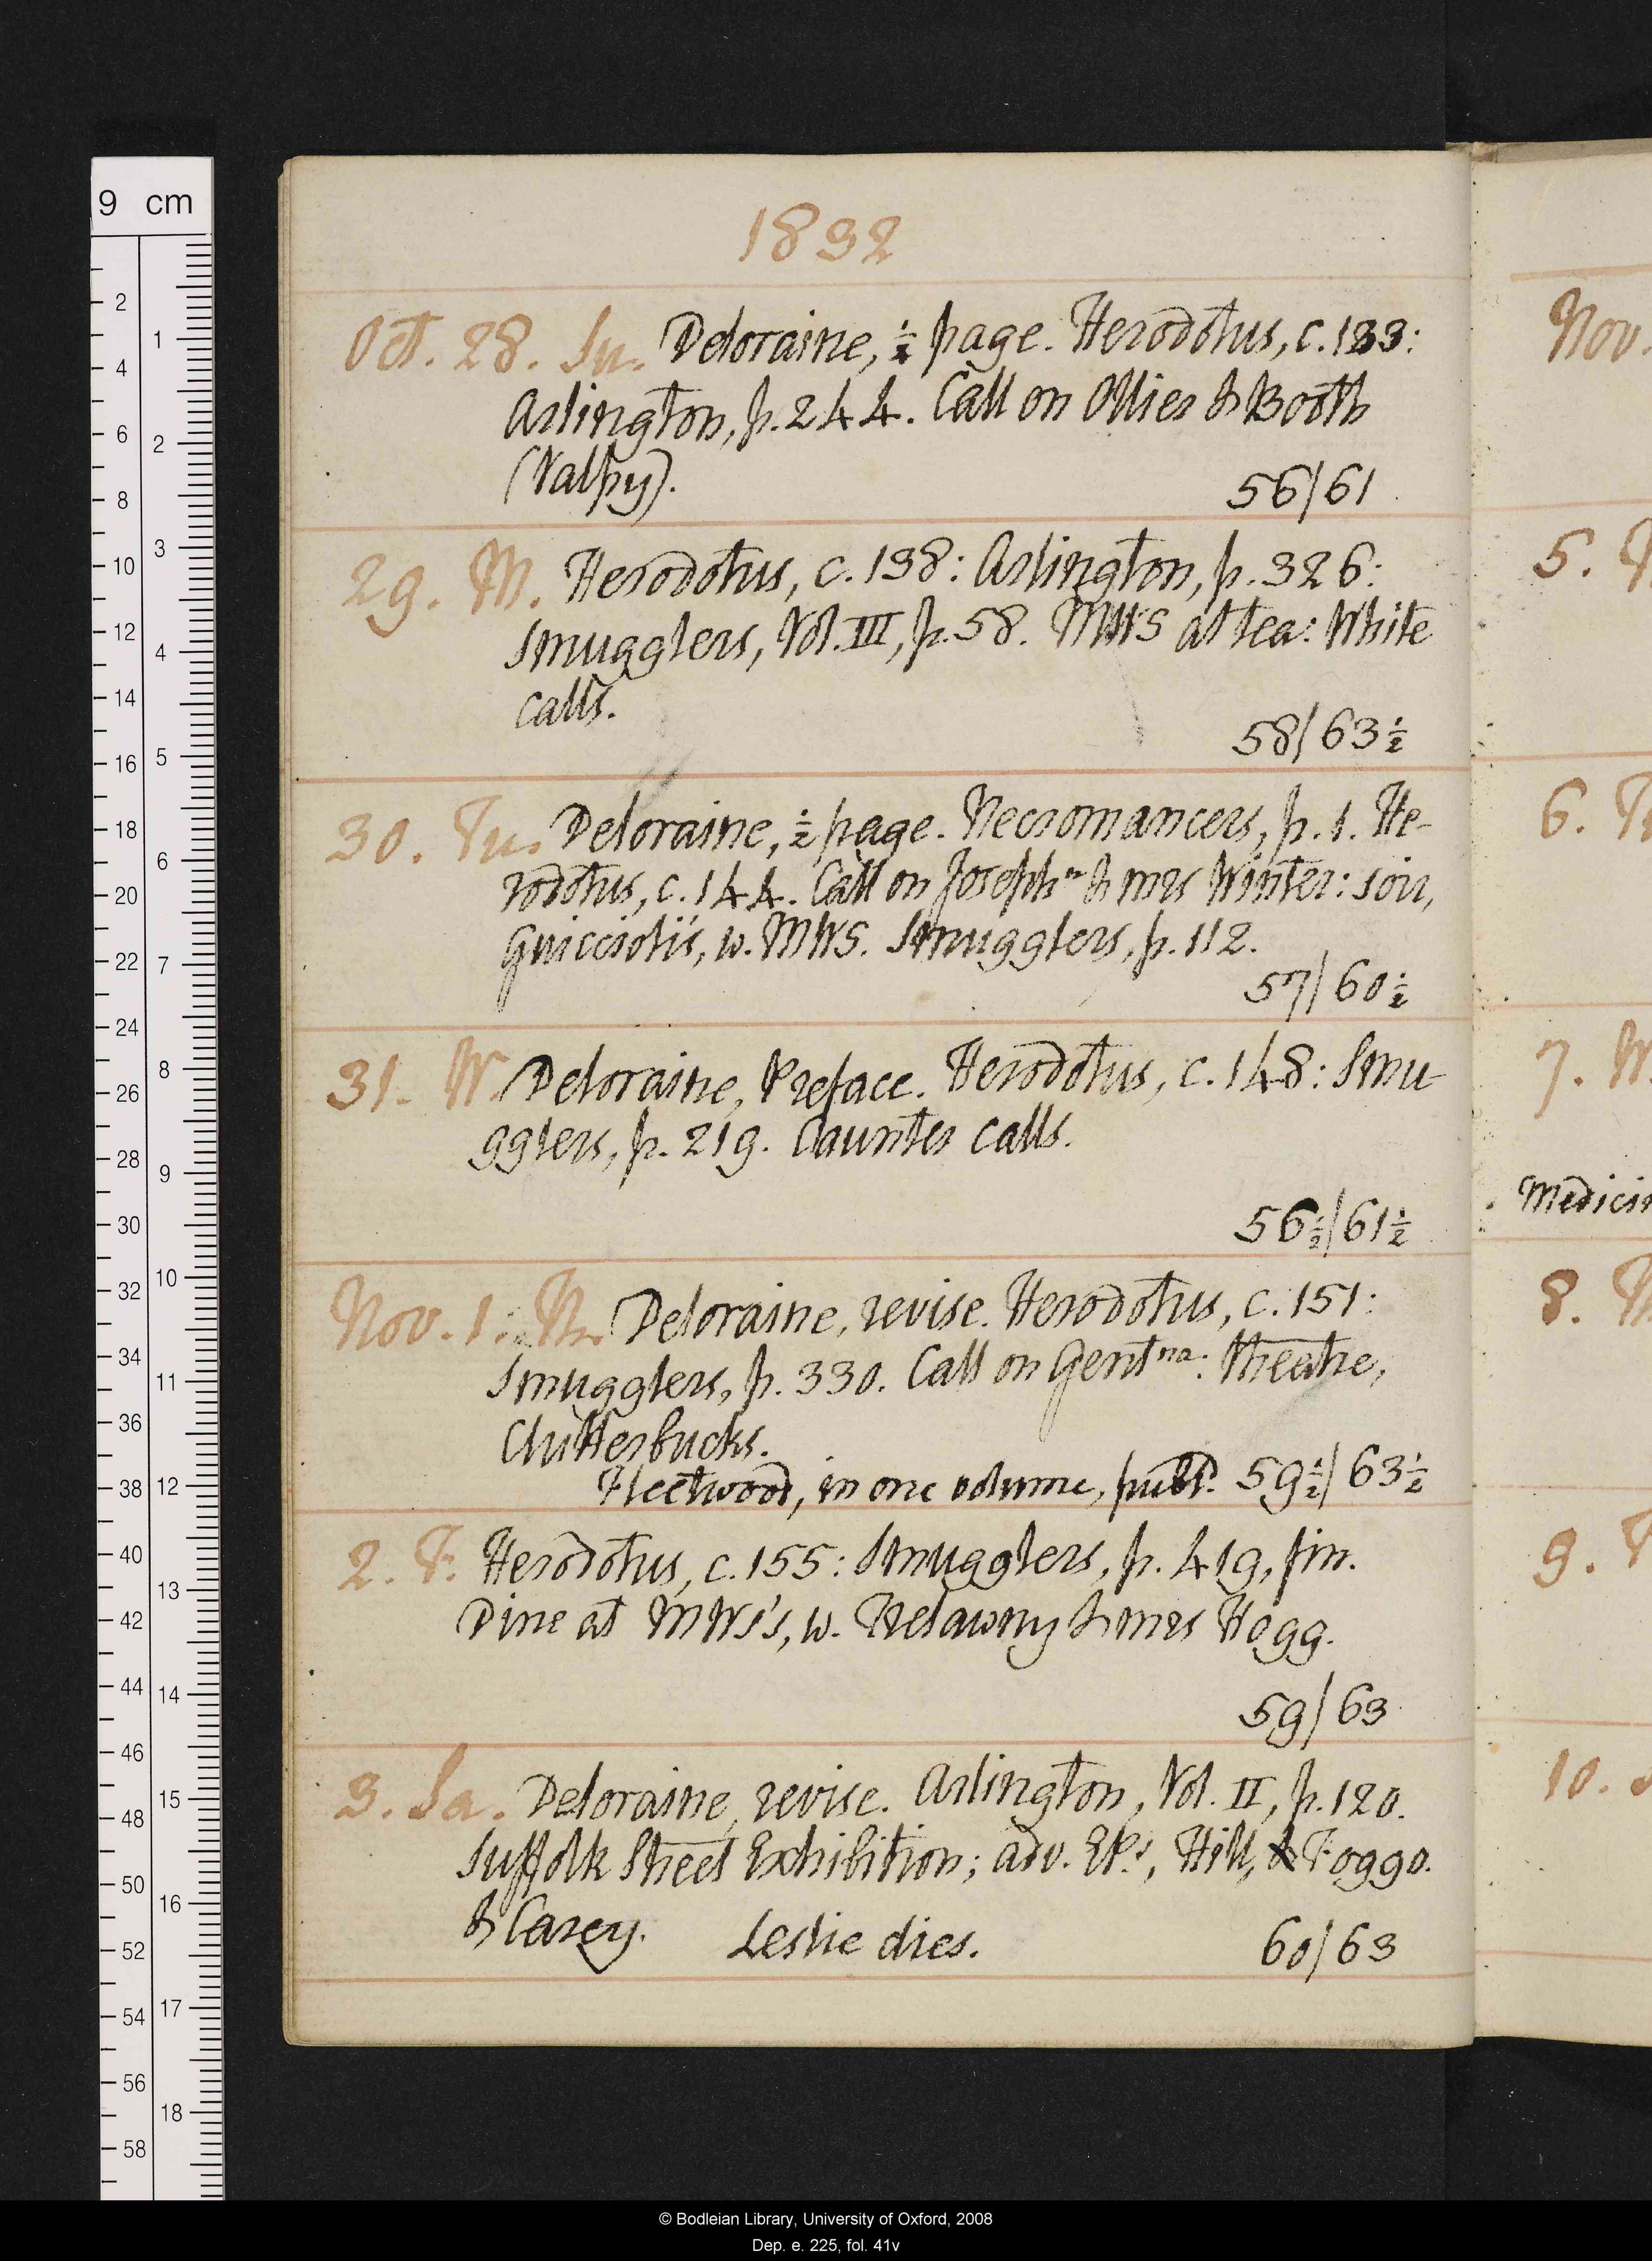 9 cm
1832
Oct. 28. Su. Deloraine, ½ page. Herodotus, c. 133:
Arlington, p. 244. Call on Ollier & Booth
(Valpy).
56/61
29. M. Herodotus, c. 138: Arlington, p. 326:
Smugglers, Vol. III, p. 58. MWS at tea: White
calls.
58/63½
30. Tu. Deloraine, ½ page. Necromancers, p. 1. He-
rodotus, c. 144. Call on Josephᵃ & mrs Winter: soir,
Guiccioli's, w. MWS. Smugglers, p. 112.
57/60½
31. W. Deloraine, Preface. Herodotus, c. 148: Smu-
gglers, p. 219. Caunter calls.
56½/61½
Nov. 1. Th. Deloraine, revise. Herodotus, c. 151:
Smugglers, p. 330. Call on Gentⁿᵃ: theatre,
Clutterbucks.
Fleetwood, in one volume, publ. 59½/63½
2. F. Herodotus, c. 155: Smugglers, p. 419, fin.
Dine at MWS's, w. Trelawny & mrs Hogg.
59/63
3. Sa. Deloraine, revise. Arlington, Vol. II, p. 120.
Suffolk Street Exhibition; adv. Hill, & Foggo.
& Carey. Leslie dies. 60/63
Nov.
5.
6.
7.
Medicin
8.
9.
10.
© Bodleian Library, University of Oxford, 2008
Dep. e. 225, fol. 41v